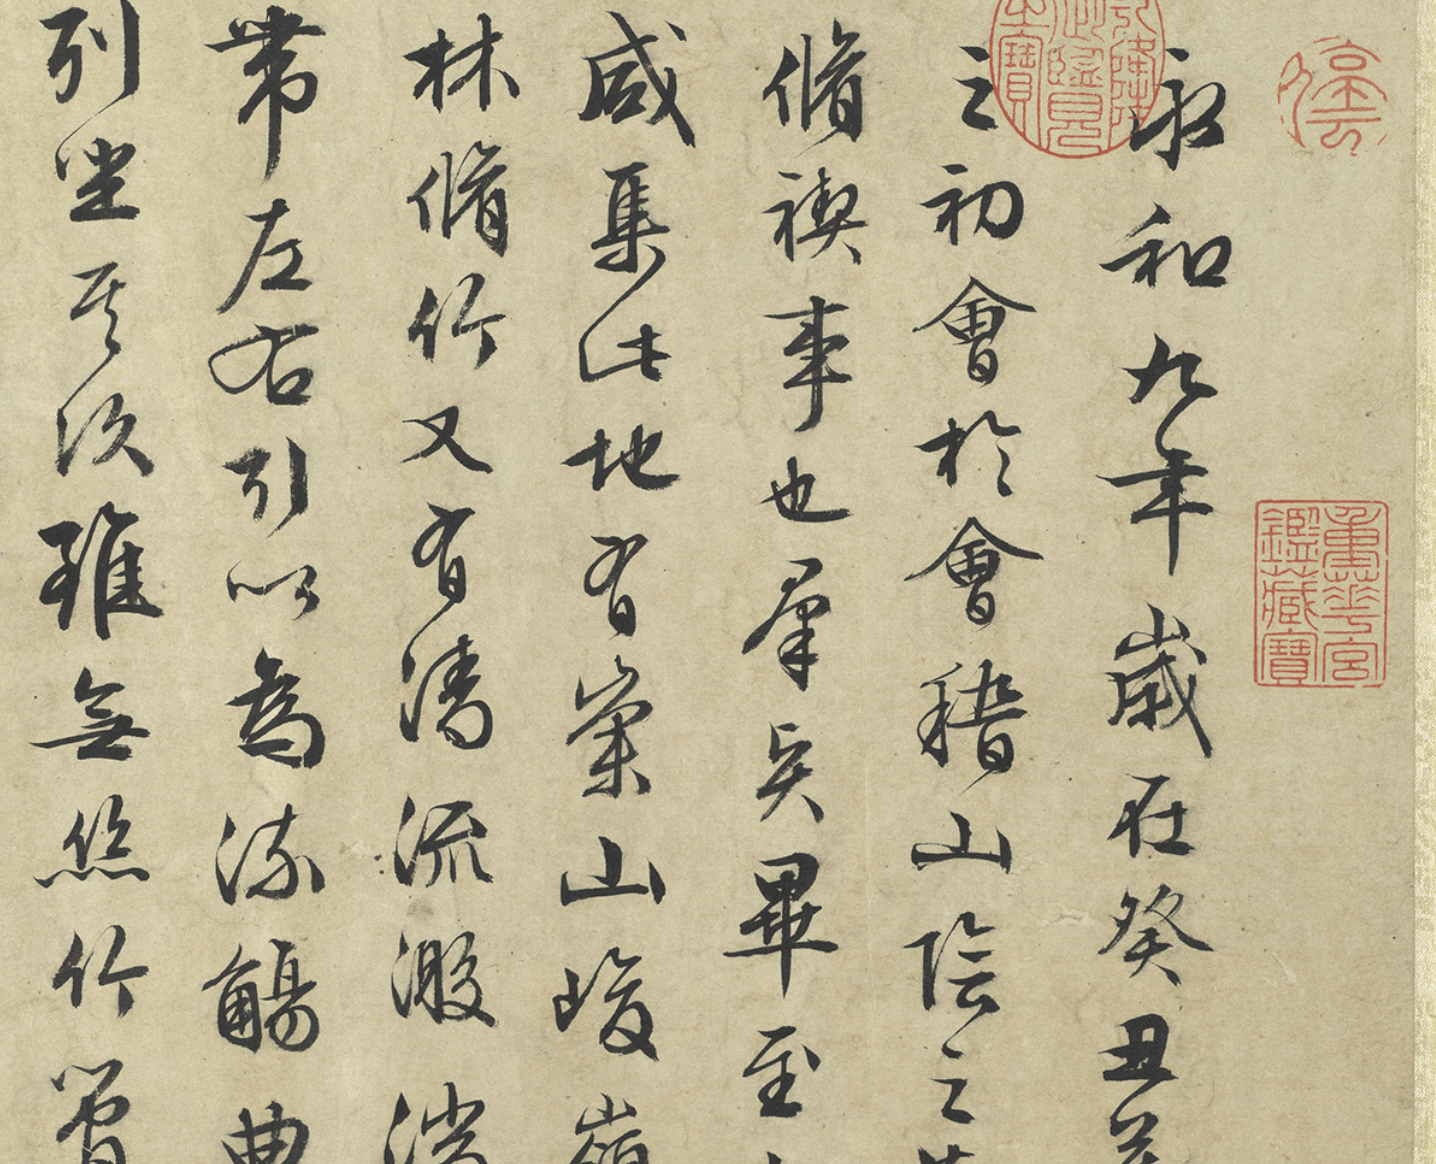 重華宮
鑑藏寶
永和九年歲在癸丑
之初會於會稽山陰之
脩禊事也羣賢畢至
咸集此地有崇山峻嶺
林脩竹又有清流激湍
帶左右引以為流觴曲
列坐其次雖無絲竹管